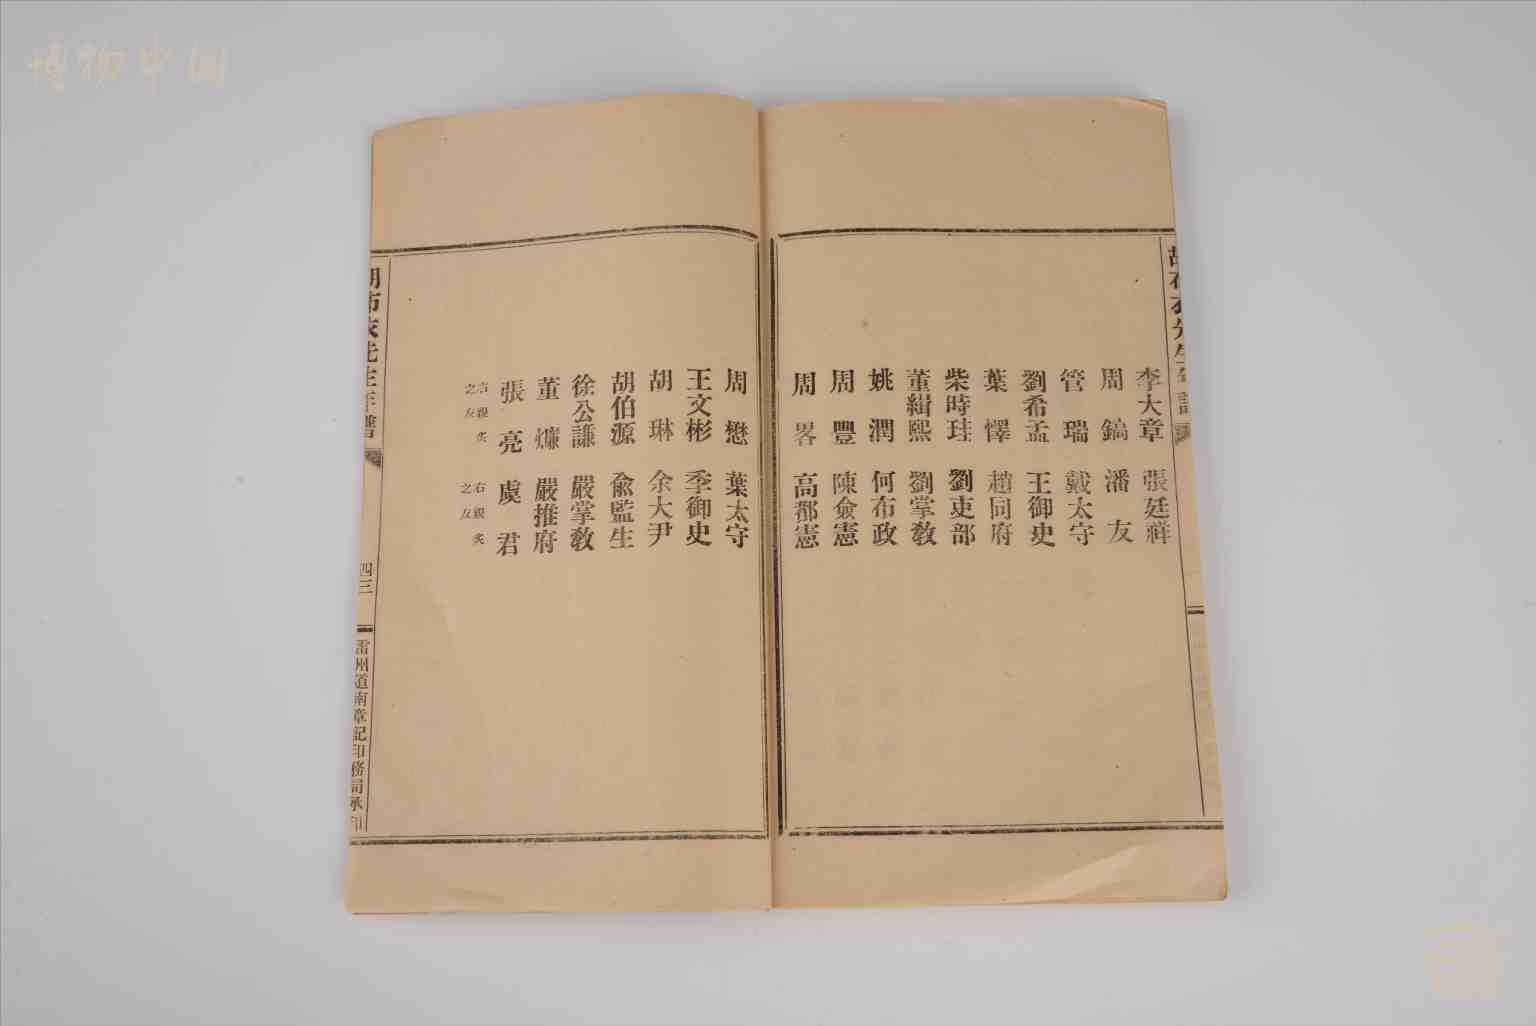 博物中国
李大章 張廷祥
周鎬 潘友
管瑞 戴太守
劉希孟 王御史
葉懌 趙同府
柴時珪 劉吏部
董緝熙 劉掌教
姚潤 何布政
周豐 陳僉憲
周畧 高都憲
周懋 葉太守
王文彬 季御史
胡琳 余大尹
胡伯源 俞監生
徐公謙 嚴掌教
董㷿 嚴推府
張亮 虞君
右親炙之友 右親炙之友
胡布衣先生年譜
四三
雷州道南章記印務局承印